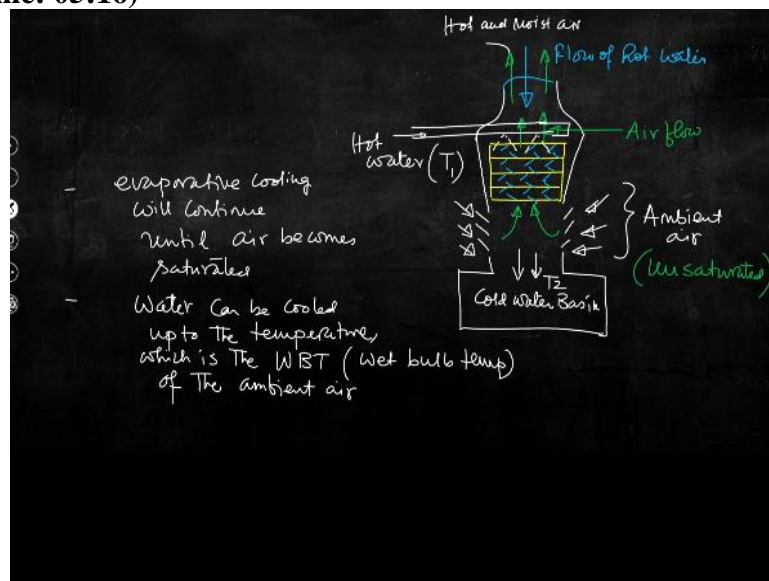 Hot and Moist air
Flow of hot water
Air flow
Hot
water (T1)
Ambient
air
(Unsaturated)
T2
Cold water Basin
- evaporative cooling
will continue
until air becomes
saturated
- Water can be cooled
upto the temperature,
which is the WBT (wet bulb temp)
of the ambient air